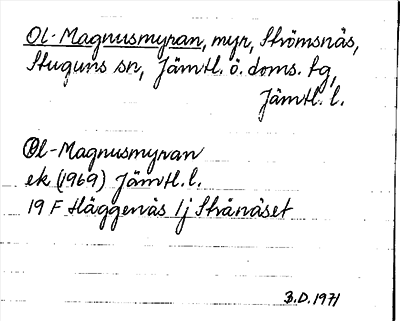 Ol-Magnusmyran, myr, Strömsnäs,
Stuguns sn, Jämtl. ö. doms. tg,
Jämtl. l.
Ol-Magnusmyran
ek (1969) Jämtl. l.
19 F Häggenås 1j Strånäset
B.D. 1971